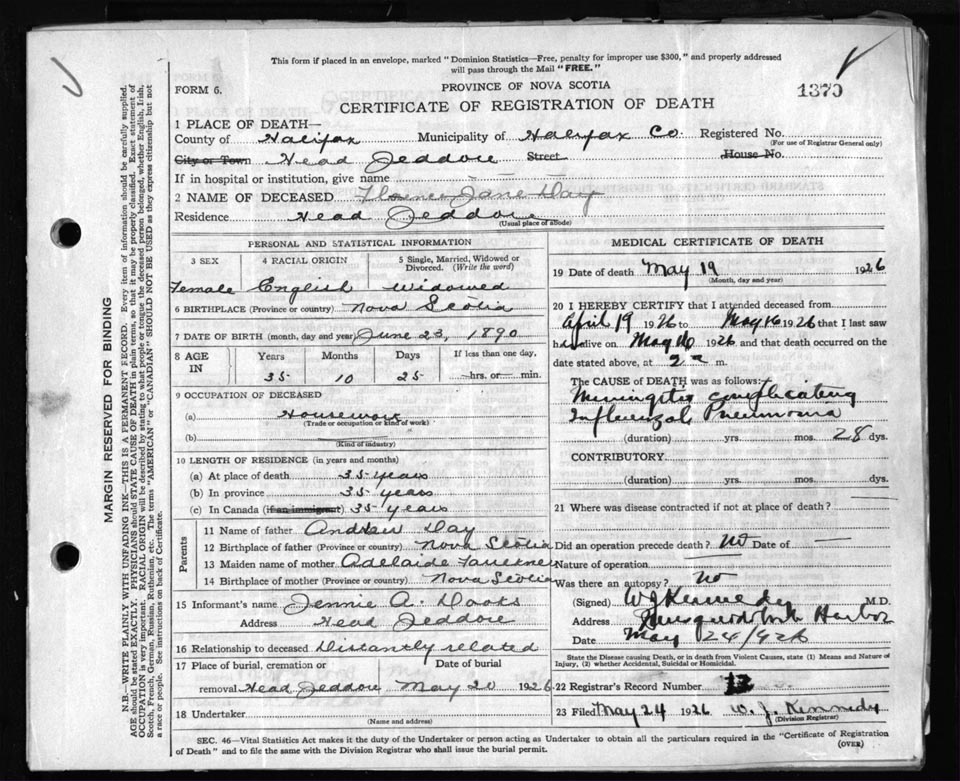 This form if placed in an envelope, marked "Dominion Statistics—Free, penalty for improper use $300," and properly addressed
will pass through the Mail "FREE."
FORM 6.
PROVINCE OF NOVA SCOTIA
1370
CERTIFICATE OF REGISTRATION OF DEATH
1 PLACE OF DEATH—
County of Halifax Municipality of Halifax Co. Registered No.
(For use of Registrar General only)
City or Town Head Jeddore Street House No.
If in hospital or institution, give name
2 NAME OF DECEASED Florence Jane Day
Residence Head Jeddore
(Usual place of abode)
PERSONAL AND STATISTICAL INFORMATION
3 SEX 4 RACIAL ORIGIN 5 Single, Married, Widowed or Divorced. (Write the word)
Female English Widowed
6 BIRTHPLACE (Province or country) Nova Scotia
7 DATE OF BIRTH (month, day and year) June 23, 1890
8 AGE IN Years Months Days If less than one day,
35 10 25 —hrs. or — min.
9 OCCUPATION OF DECEASED
(a) Housework
(Trade or occupation or kind of work)
(b)
(Kind of industry)
10 LENGTH OF RESIDENCE (in years and months)
(a) At place of death 35 years
(b) In province 35 years
(c) In Canada (if an immigrant) 35 years
Parents
11 Name of father Andrew Day
12 Birthplace of father (Province or country) Nova Scotia
13 Maiden name of mother Adelaide Faulkner
14 Birthplace of mother (Province or country) Nova Scotia
15 Informant's name Jennie A. Dooks
Address Head Jeddore
16 Relationship to deceased Distantly related
17 Place of burial, cremation or Date of burial
removal Head Jeddore May 20 1926
18 Undertaker
(Name and address)
MEDICAL CERTIFICATE OF DEATH
19 Date of death May 19 1926
(Month, day and year)
20 I HEREBY CERTIFY that I attended deceased from
April 19 1926 to May 16 1926 that I last saw
h alive on May 16 1926 and that death occurred on the
date stated above, at 2 m.
The CAUSE of DEATH was as follows:
Meningitis complicating
Influenzal Pneumonia
(duration) yrs. mos. 28 dys.
CONTRIBUTORY.
(duration) yrs. mos. dys.
21 Where was disease contracted if not at place of death?
Did an operation precede death? No Date of —
Nature of operation
Was there an autopsy? No
(Signed) W J Kennedy M.D.
Address Musquodoboit Harbor
Date May 24/926
State the Disease causing Death, or in death from Violent Causes, state (1) Means and Nature of
Injury, (2) whether Accidental, Suicidal or Homicidal.
22 Registrar's Record Number
23 Filed May 24 1926 W. J. Kennedy
(Division Registrar)
SEC. 46—Vital Statistics Act makes it the duty of the Undertaker or person acting as Undertaker to obtain all the particulars required in the "Certificate of Registration
of Death" and to file the same with the Division Registrar who shall issue the burial permit.
(OVER)
MARGIN RESERVED FOR BINDING
N.B.—WRITE PLAINLY WITH UNFADING INK—THIS IS A PERMANENT RECORD. Every item of information should be carefully supplied.
AGE should be stated EXACTLY. PHYSICIANS should STATE CAUSE OF DEATH in plain terms, so that it may be properly classified. Exact statement of
OCCUPATION is very important. RACIAL ORIGIN will be described by stating to what people or tongue the deceased person belonged, whether English, Irish,
Scotch, French, German, Russian, Ruthenian, etc. The terms "AMERICAN" or "CANADIAN" SHOULD NOT BE USED as they express citizenship but not
a race or people. See instructions on back of Certificate.